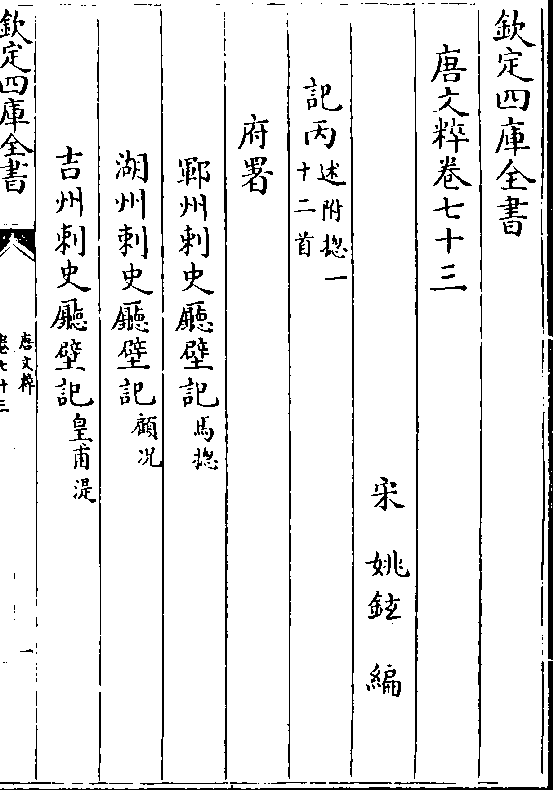 欽定四庫全書
唐文粹卷七十三
宋 姚鉉 編
記丙 述附揔一
十二首
府署
鄆州刺史廳壁記 馬揔
湖州刺史廳壁記 顧况
吉州刺史廳壁記 皇甫湜
欽定四庫全書
唐文粹
卷七十三
一